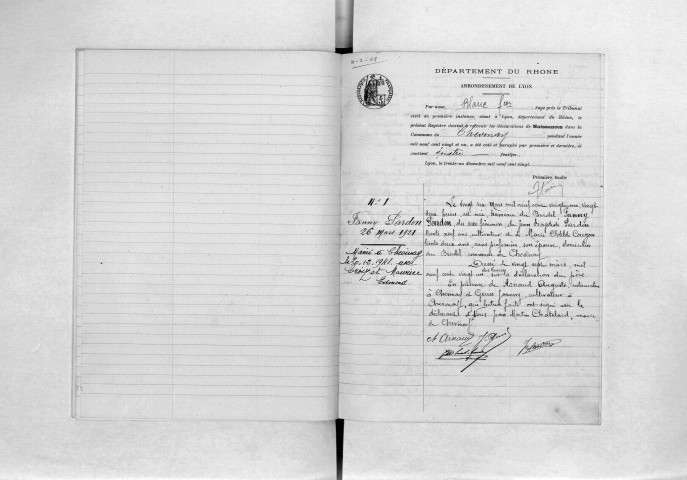 DÉPARTEMENT DU RHONE
ARRONDISSEMENT DE LYON
Par nous, Blanc Juge près le Tribunal
civil de première instance, séant à Lyon, département du Rhône, le
présent Registre destiné à recevoir les déclarations de Naissances dans la
Commune de Chevinay pendant l'année
mil neuf cent vingt et un, a été coté et paraphé par première et dernière, et
contient quatre feuilles.
Lyon, le trente-un décembre mil neuf cent vingt.
Première feuille
N° 1
Fanny Pardon
26 Mars 1921
Mariée à Chevinay
le 1941 avec
Maurice
Edmond
Le vingt six Mars mil neuf cent vingt un, vingt
deux heures est née hameau du Fanny
Pardon du sexe féminin, de Jean Baptiste Pardon
trente neuf ans cultivateur et de Marie Clotilde
trente deux ans, sans profession son épouse, domiciliés
au commune de Chevinay
Dressé le vingt sept mars, mil
neuf cent vingt un heures sur la déclaration du père
En présence de Auguste,
à Chevinay et cultivateur à
Chevinay, qui lecture faite ont signé avec le
déclarant et Nous Jean Martin Chatelard, maire
de Chevinay